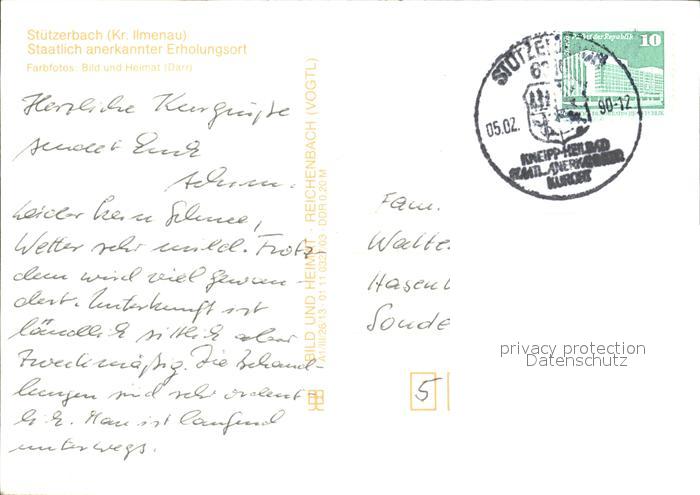 Stützerbach (Kr. Ilmenau)
Staatlich anerkannter Erholungsort
Farbfotos: Bild und Heimat (Darr)
Herzliche Kurgrüße
sendet Euch
Leider kein Schnee,
Wetter sehr mild. Trotz-
dem wird viel gewan-
dert. Unterkunft ist
ländlich sittlich aber
zweckmäßig. Die Behand-
lungen sind sehr ordent-
lich. Man ist laufend
unterwegs.
BILD UND HEIMAT · REICHENBACH (VOGTL)
A1/III/26/13 DDR 0,20 M
Palast der Republik 10
05.02. 90-12
KNEIPP-HEILBAD
STAATL. ANERKANNTER
KURORT
Fam.
Walte
Hasen
Sonde
5
privacy protection
Datenschutz